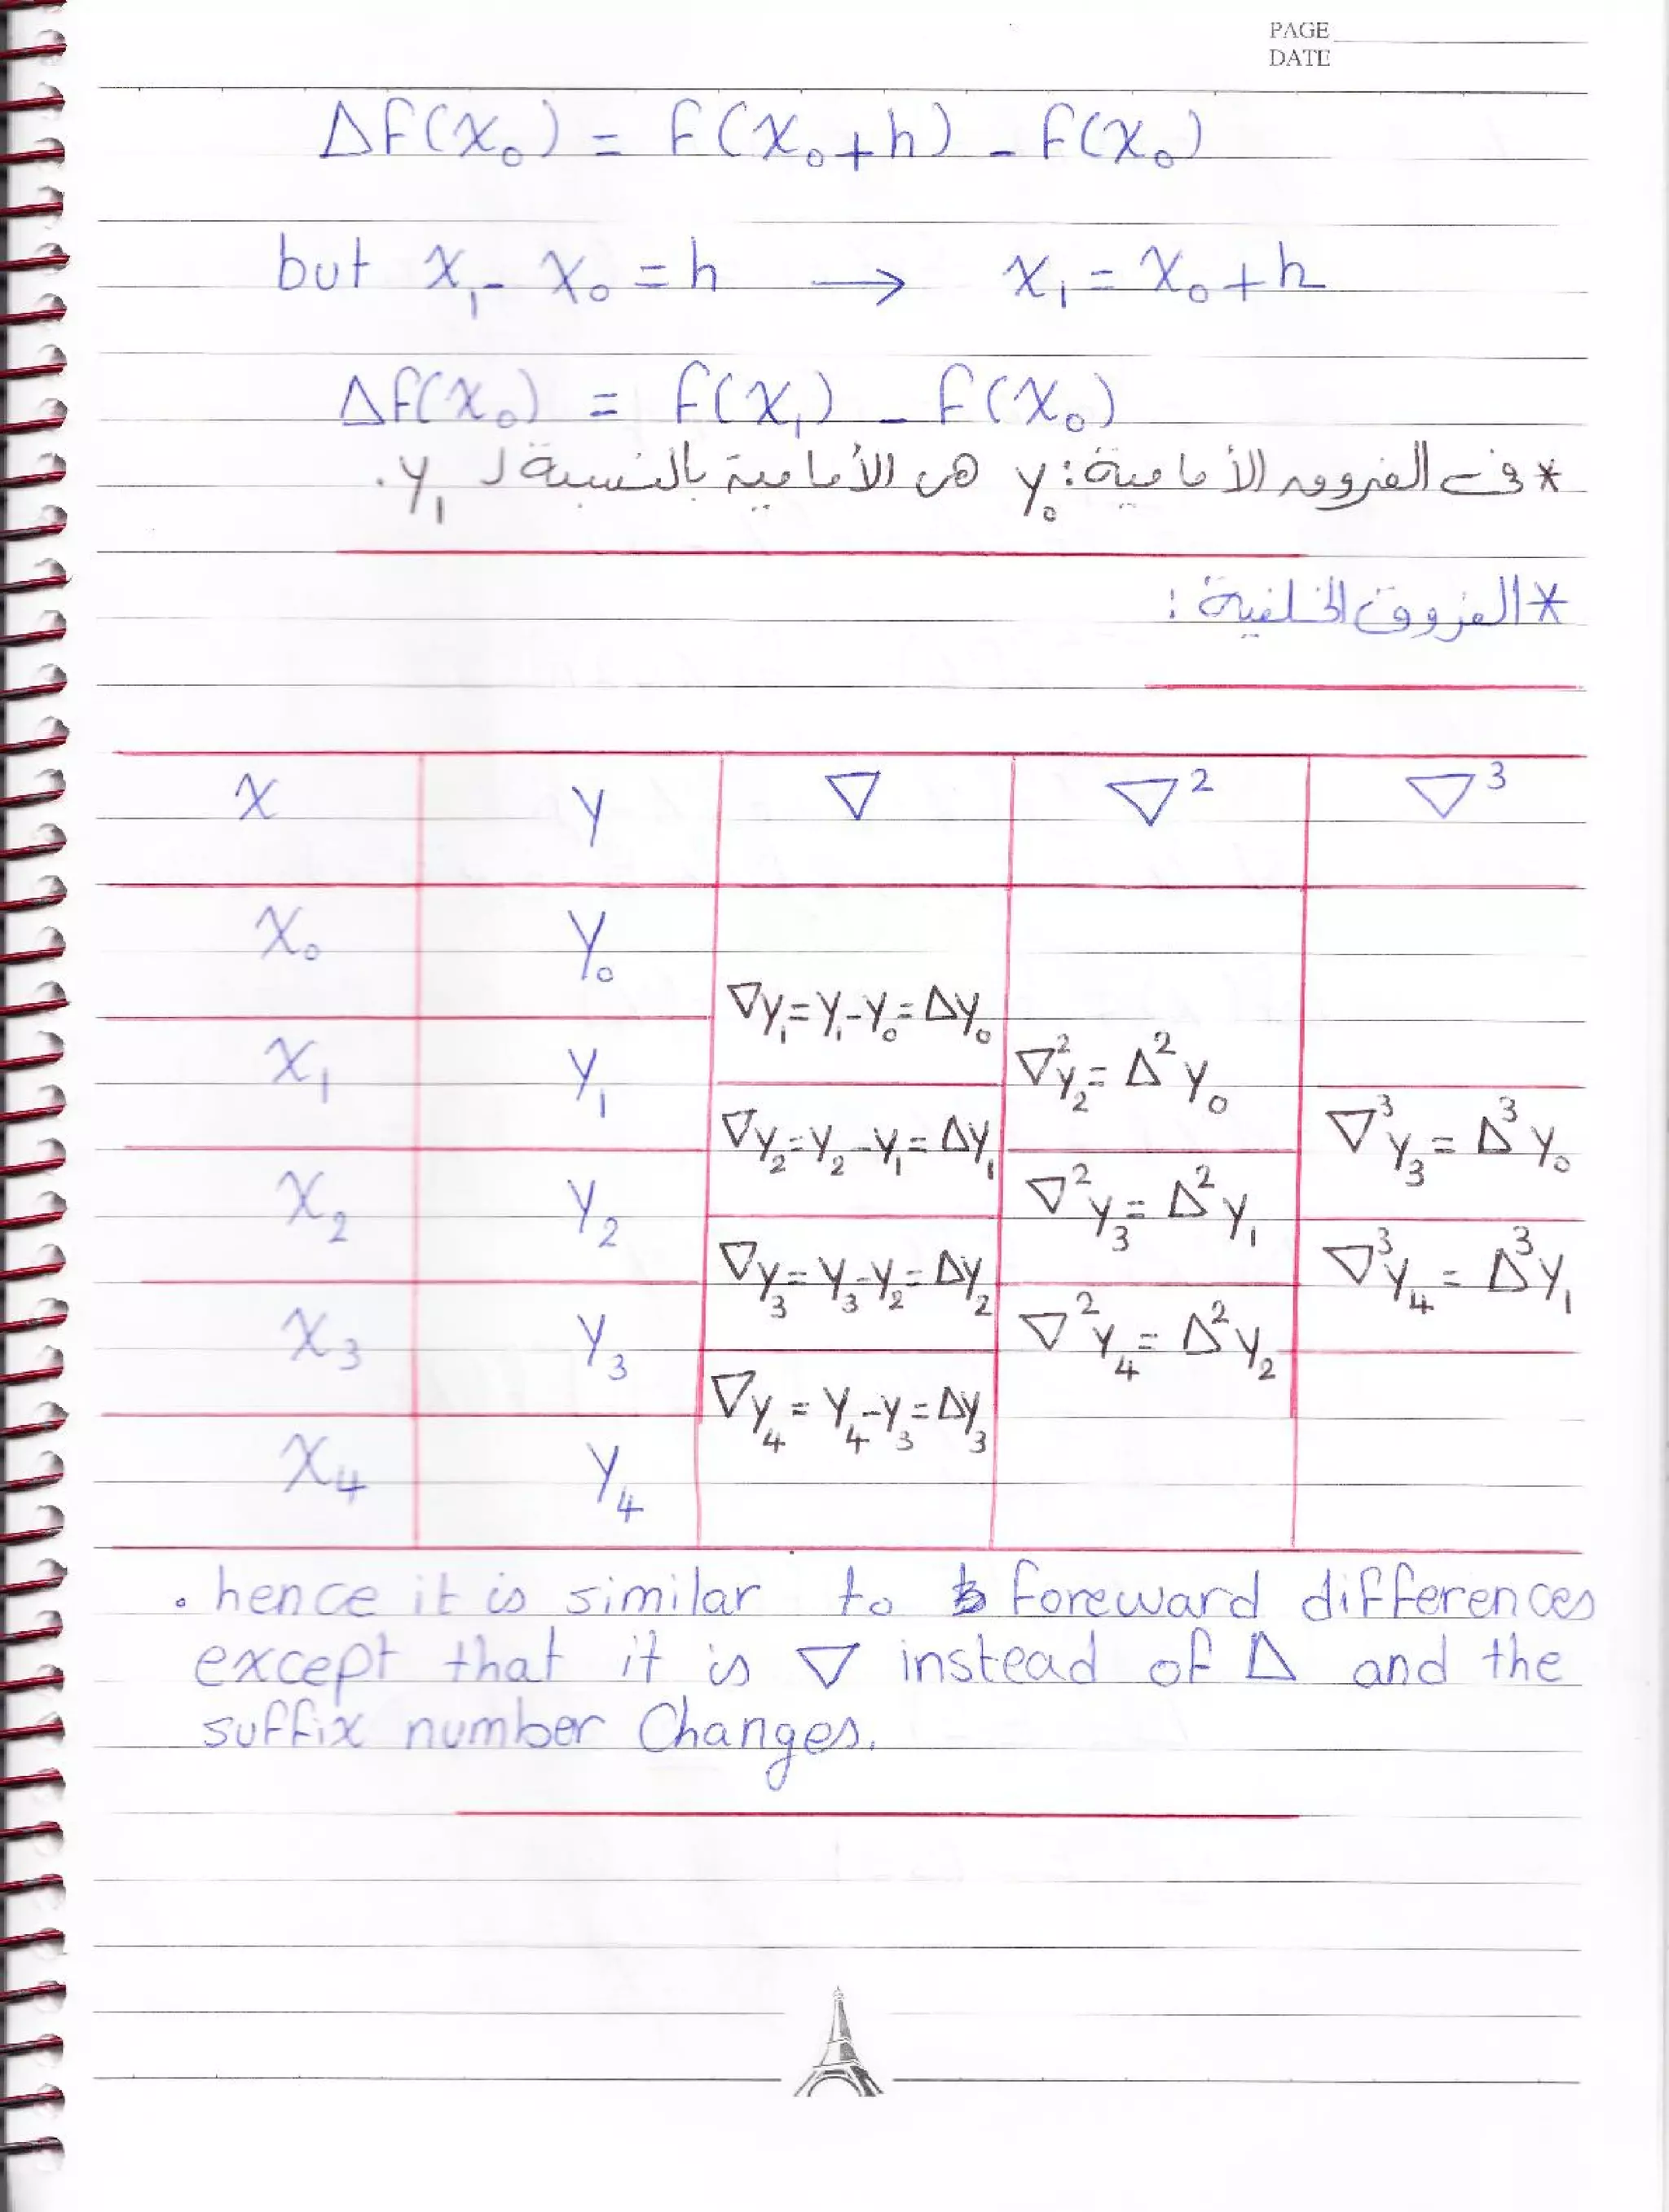 PAGE
DATE
Δf(x₀) = f(x₀+h) - f(x₀)
but x₁ - x₀ = h → x₁ = x₀ + h
Δf(x₀) = f(x₁) - f(x₀)
* في الفروق الأمامية: y₀ هي الأمامية بالنسبة لـ y₁.
* الفروق الخلفية:
x y ∇ ∇² ∇³
x₀ y₀
∇y₁ = y₁ - y₀ = Δy₀
x₁ y₁ ∇²y₂ = Δ²y₀
∇y₂ = y₂ - y₁ = Δy₁ ∇³y₃ = Δ³y₀
x₂ y₂ ∇²y₃ = Δ²y₁
∇y₃ = y₃ - y₂ = Δy₂ ∇³y₄ = Δ³y₁
x₃ y₃ ∇²y₄ = Δ²y₂
∇y₄ = y₄ - y₃ = Δy₃
x₄ y₄
. hence it is similar to foreward differences
except that it is ∇ instead of Δ and the
suffix number changes.